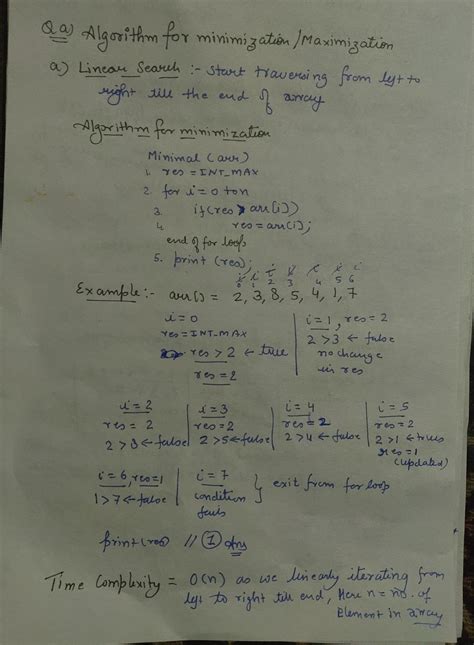 Q a) Algorithm for minimization/Maximization
a) Linear Search :- start traversing from left to
right till the end of array
Algorithm for minimization
Minimal (arr)
1. res = INT_MAX
2. for i = 0 to n
3. if (res > arr[i])
4. res = arr[i];
end of for loop
5. print (res);
i i i i i i i
0 1 2 3 4 5 6
Example:- arr[] = 2, 3, 8, 5, 4, 1, 7
i = 0
res = INT_MAX
res > 2 ← true
res = 2
i = 1, res = 2
2 > 3 ← false
no change
in res
i = 2
res = 2
2 > 8 ← false
i = 3
res = 2
2 > 5 ← false
i = 4
res = 2
2 > 4 ← false
i = 5
res = 2
2 > 1 ← true
res = 1
(updated)
i = 6, res = 1
1 > 7 ← false
i = 7
condition
fails
exit from for loop
print (res) // 1 Ans
Time Complexity = O(n) as we linearly iterating from
left to right till end, Here n = no. of
Element in array